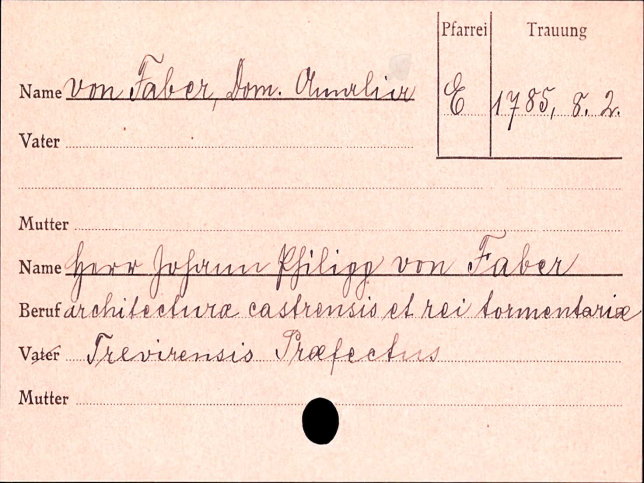 Pfarrei Trauung
Name von Faber, Dom. Amalia E 1785, 8. 2.
Vater
Mutter
Name Herr Johann Philipp von Faber
Beruf architecturæ castrensis et rei tormentariæ
Vater Trevirensis Præfectus
Mutter